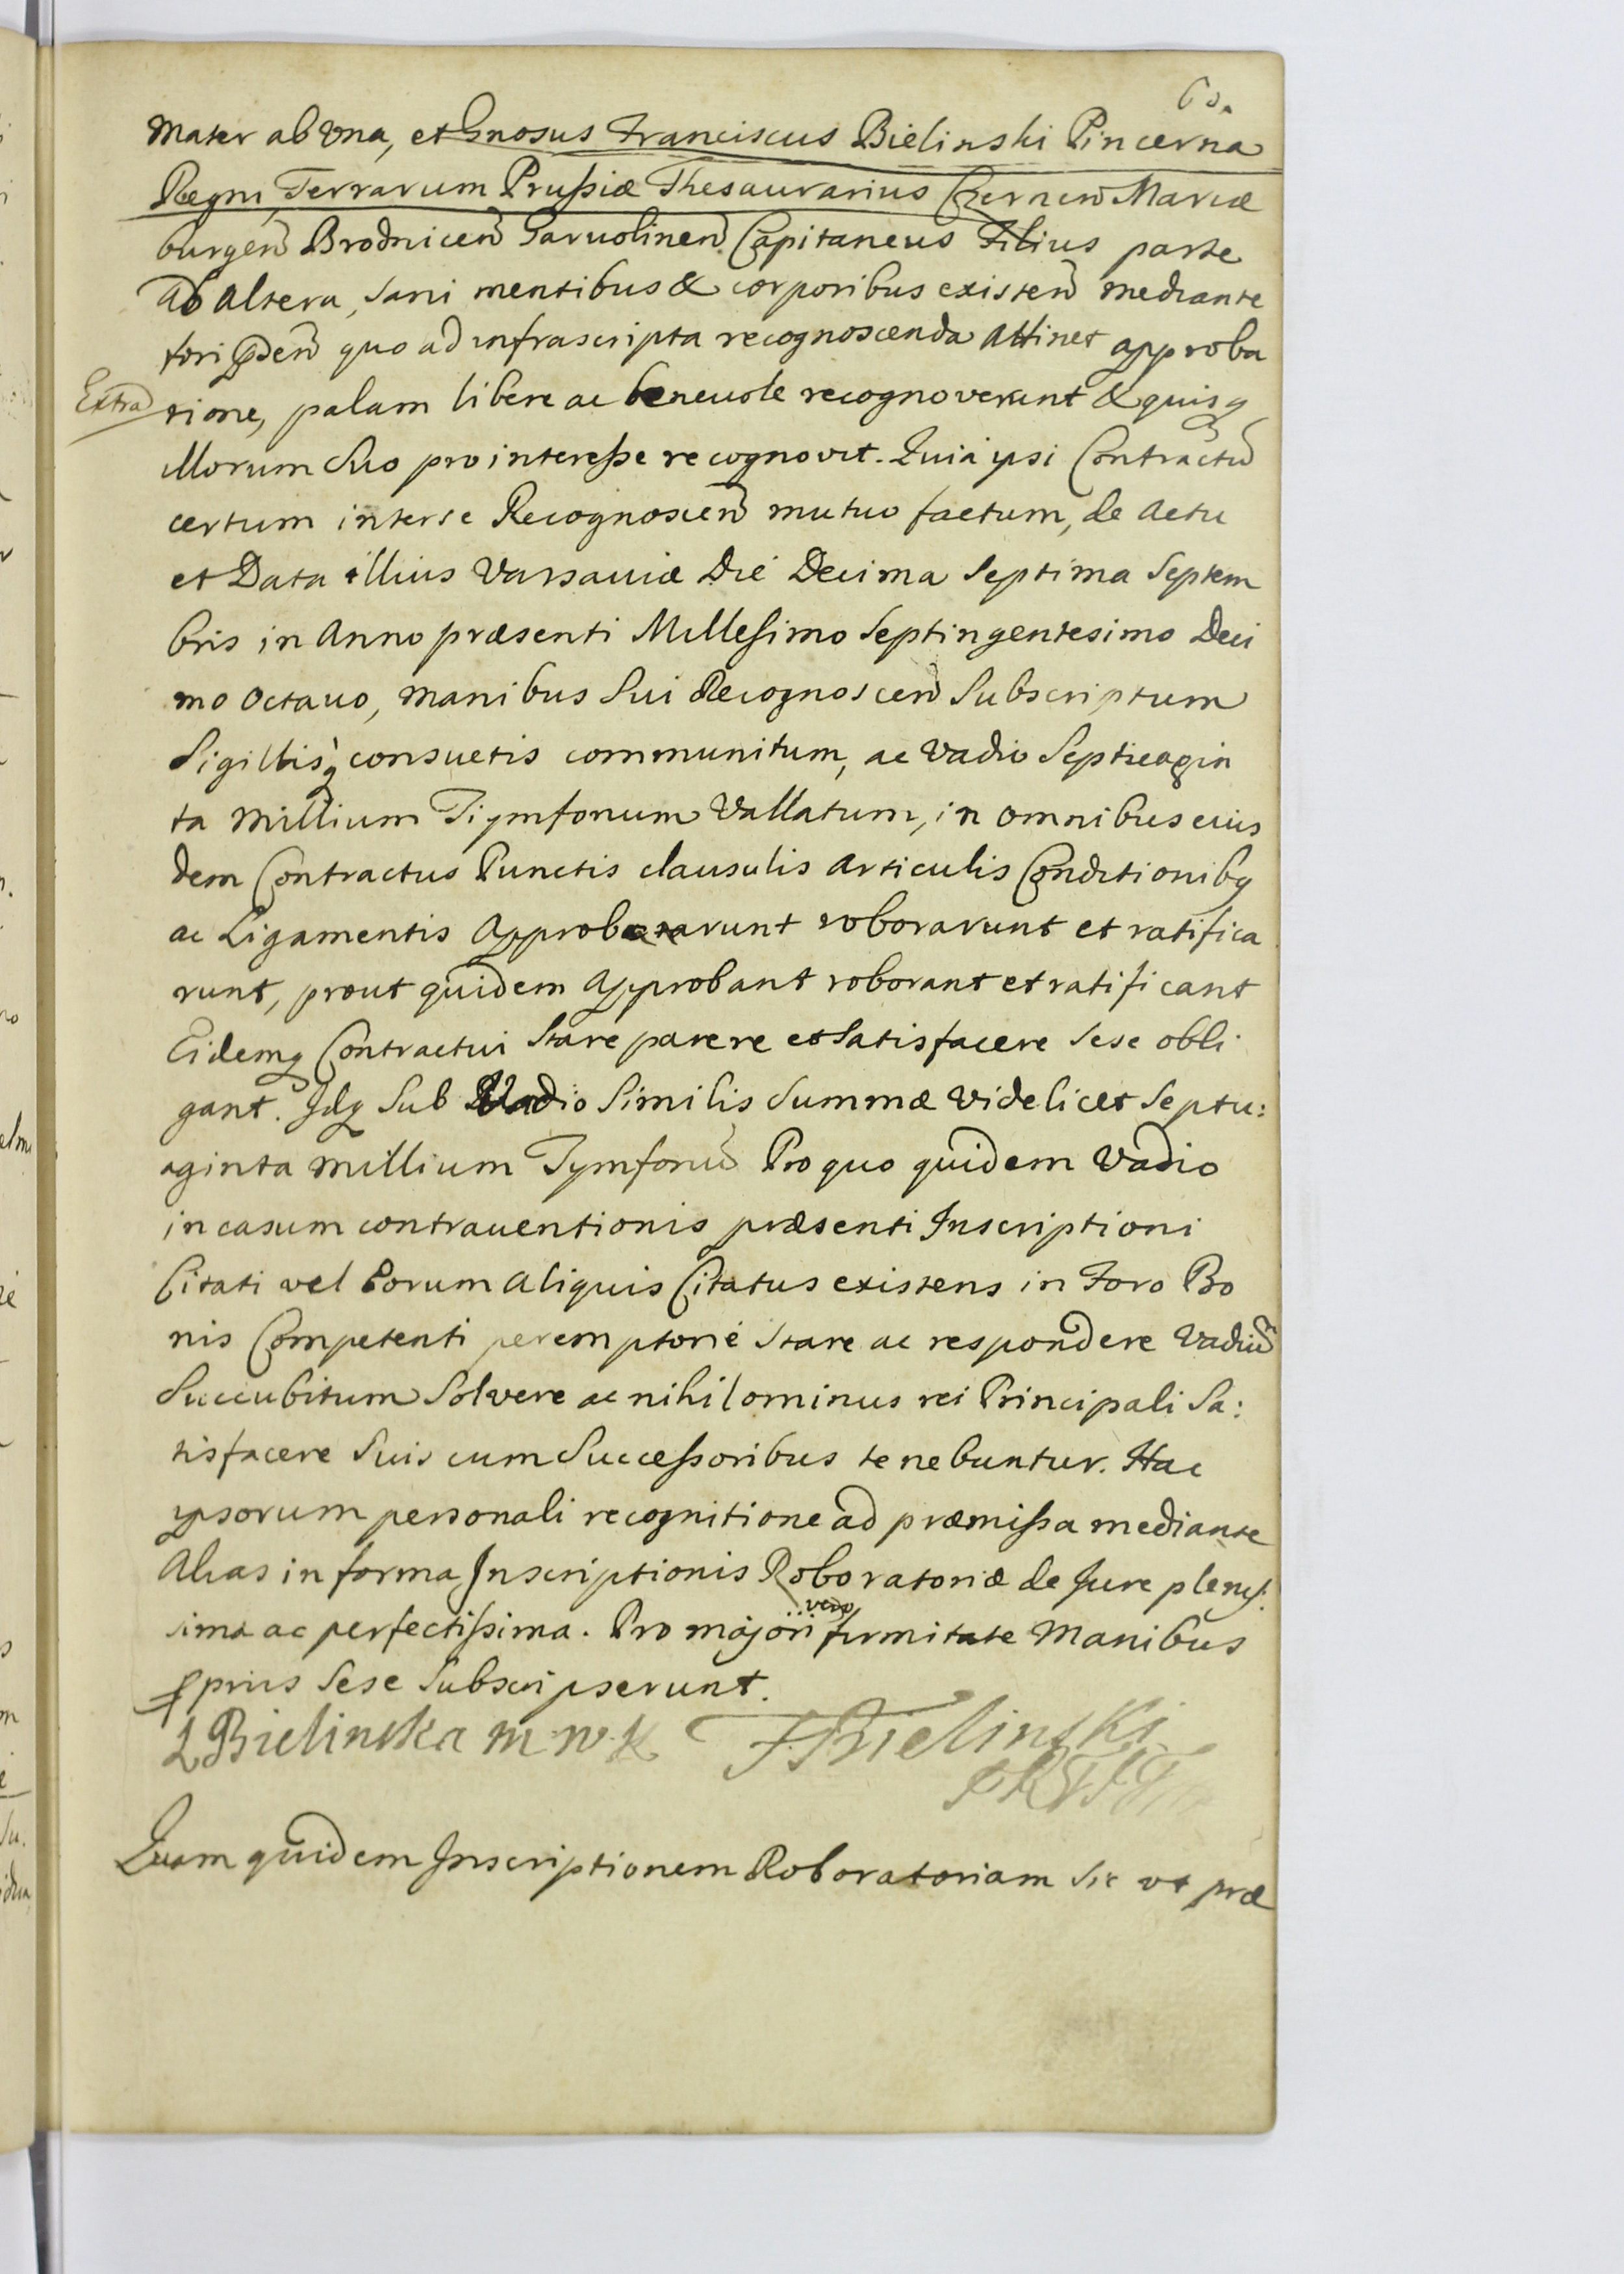 60.
Mater ab Vna, et Gnosus Franciscus Bielinski Pincerna
Regni Terrarum Prußiæ Thesaurarius Czernen̄ Mariæ
burgen̄ Brodnicen̄ Garuolinen̄ Capitaneus Filius parte
ab altera, sani mentibus & corporibus existen̄ mediante
fori quo ad infrascripta recognoscenda attinet approba
Extrad
tione, palam libere ac beneuole recognoverunt & quisq
illorum suo pro interesse recognovit. Quia ipsi Contractū
certum inter se Recognoscen̄ mutuo factum, de Actu
et Data illius Varsauiæ Die Decima Septima Septem
bris in Anno præsenti Millesimo Septingentesimo Deci
mo octauo, manibus sui Recognoscen̄ Subscriptum
Sigillisq consuetis communitum, ac Vadio Septuagin
ta Millium Tijmfonum Vallatum, in omnibus eius
dem Contractus Punctis clausulis articulis Conditionibq
ac Ligamentis Approbarunt roborarunt et ratifica
runt, prout quidem approbant roborant et ratificant
Eidemq Contractui stare parere et satisfacere sese obli
gant. Idq sub Vadio similis summæ videlicet septu:
aginta millium Tymfonū Pro quo quidem Vadio
in casum contrauentionis præsenti Inscriptioni
Citati vel Eorum aliquis Citatus existens in Foro Bo
nis Competenti peremptorie stare ac respondere Vadiū
Succubitum Solvere ac nihilominus rei Principali Sa:
tisfacere Suis cum Successoribus tenebuntur. Hac
ipsorum personali recognitione ad præmissa mediante
Alias in forma Inscriptionis Roboratoriæ de Jure pleniß:
vero
ima ac perfectißima. Pro majori firmitate Manibus
ꝓprijs sese subscripserunt.
L Bielinska m. w. k F Bielinski
Quam quidem Inscriptionem Roboratoriam sic vt præ